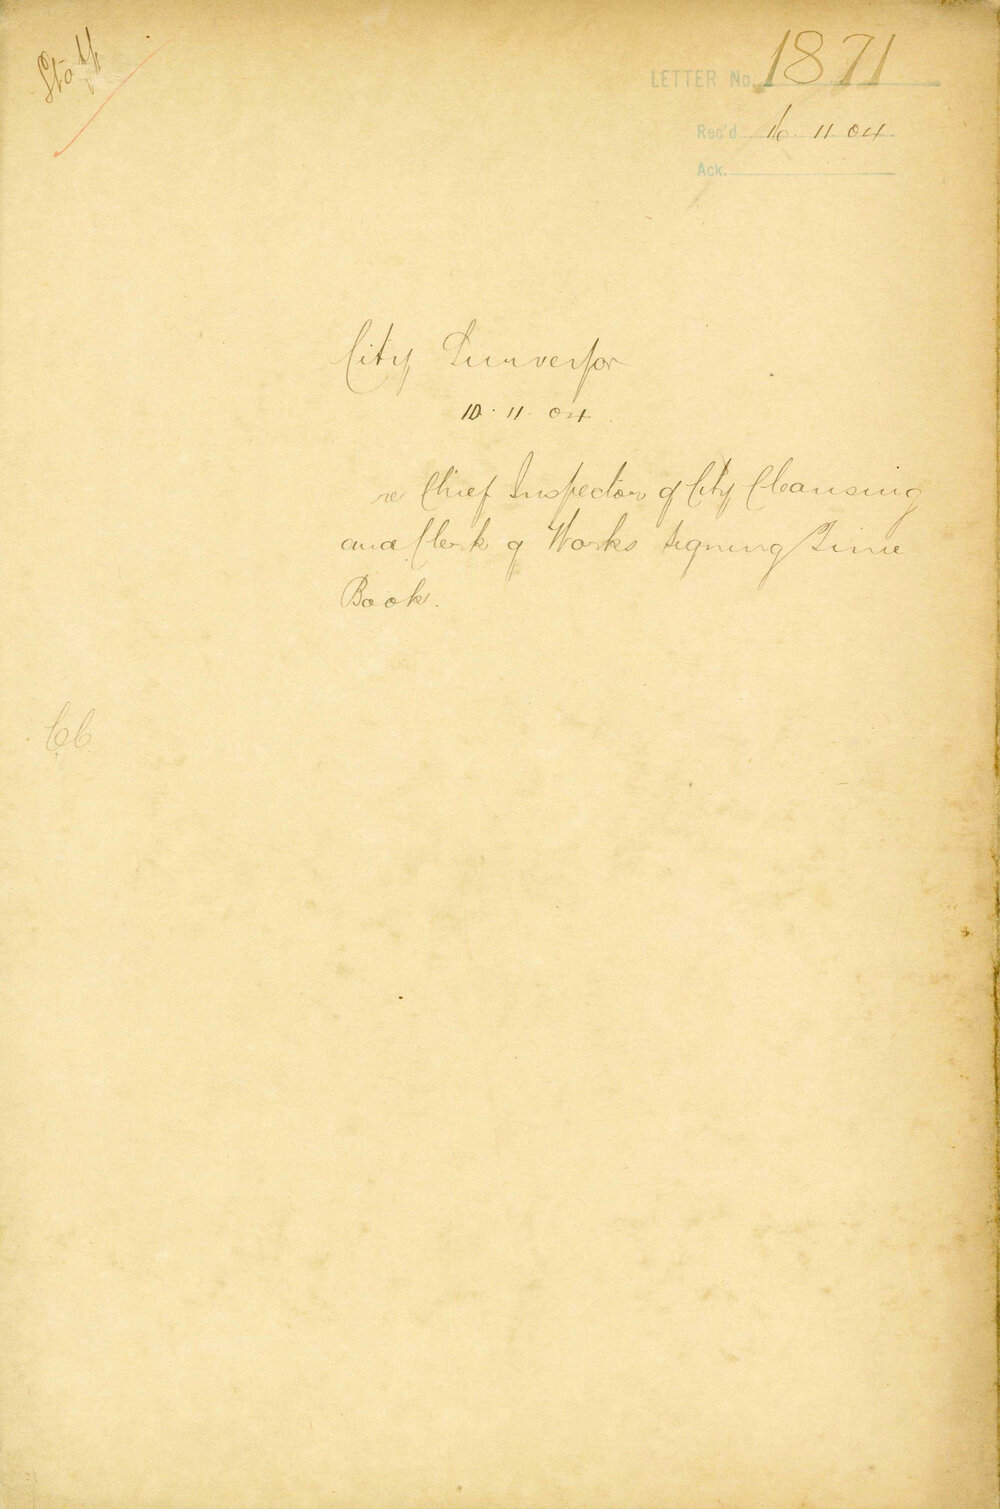 Staff
LETTER No. 1871
Rec'd 16. 11 04
Ack.
City Surveyor
10. 11 04
re Chief Inspector of City Cleansing
and Clerk of Works signing Time
Book.